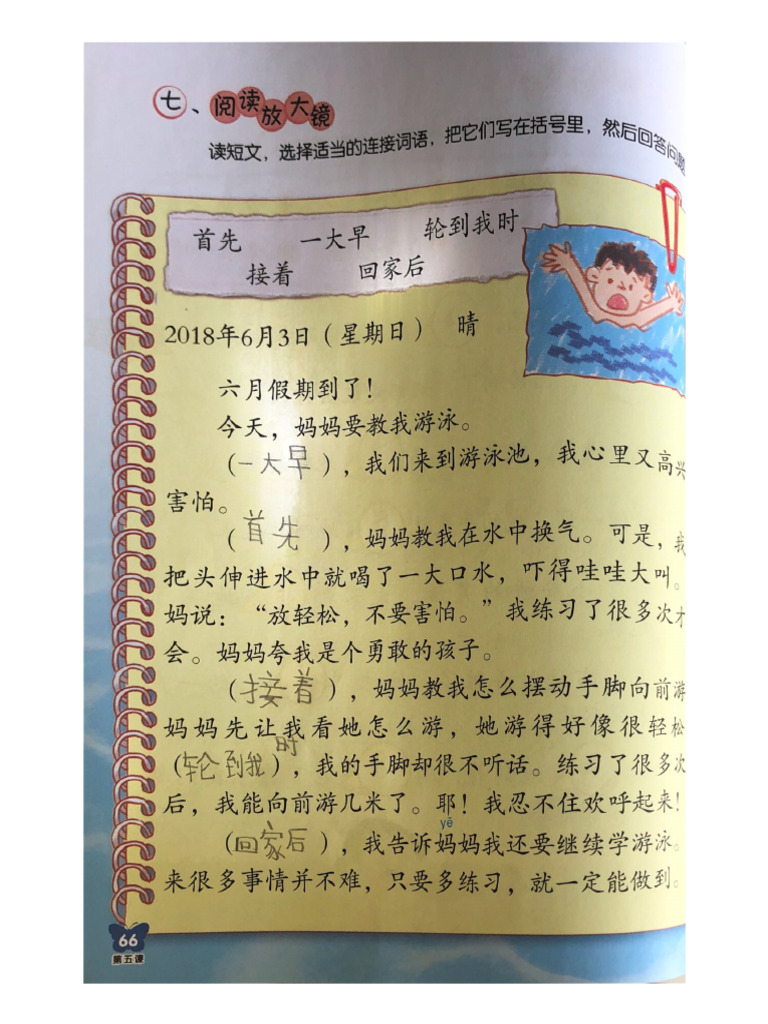 七、阅读放大镜
读短文，选择适当的连接词语，把它们写在括号里，然后回答问题
首先 一大早 轮到我时
接着 回家后
2018年6月3日（星期日） 晴
六月假期到了！
今天，妈妈要教我游泳。
（一大早），我们来到游泳池，我心里又高兴
害怕。
（首先），妈妈教我在水中换气。可是，我
把头伸进水中就喝了一大口水，吓得哇哇大叫。
妈说：“放轻松，不要害怕。”我练习了很多次才
会。妈妈夸我是个勇敢的孩子。
（接着），妈妈教我怎么摆动手脚向前游
妈妈先让我看她怎么游，她游得好像很轻松
（轮到我时），我的手脚却很不听话。练习了很多次
后，我能向前游几米了。耶！我忍不住欢呼起来！
yē
（回家后），我告诉妈妈我还要继续学游泳。
来很多事情并不难，只要多练习，就一定能做到。
66
第五课